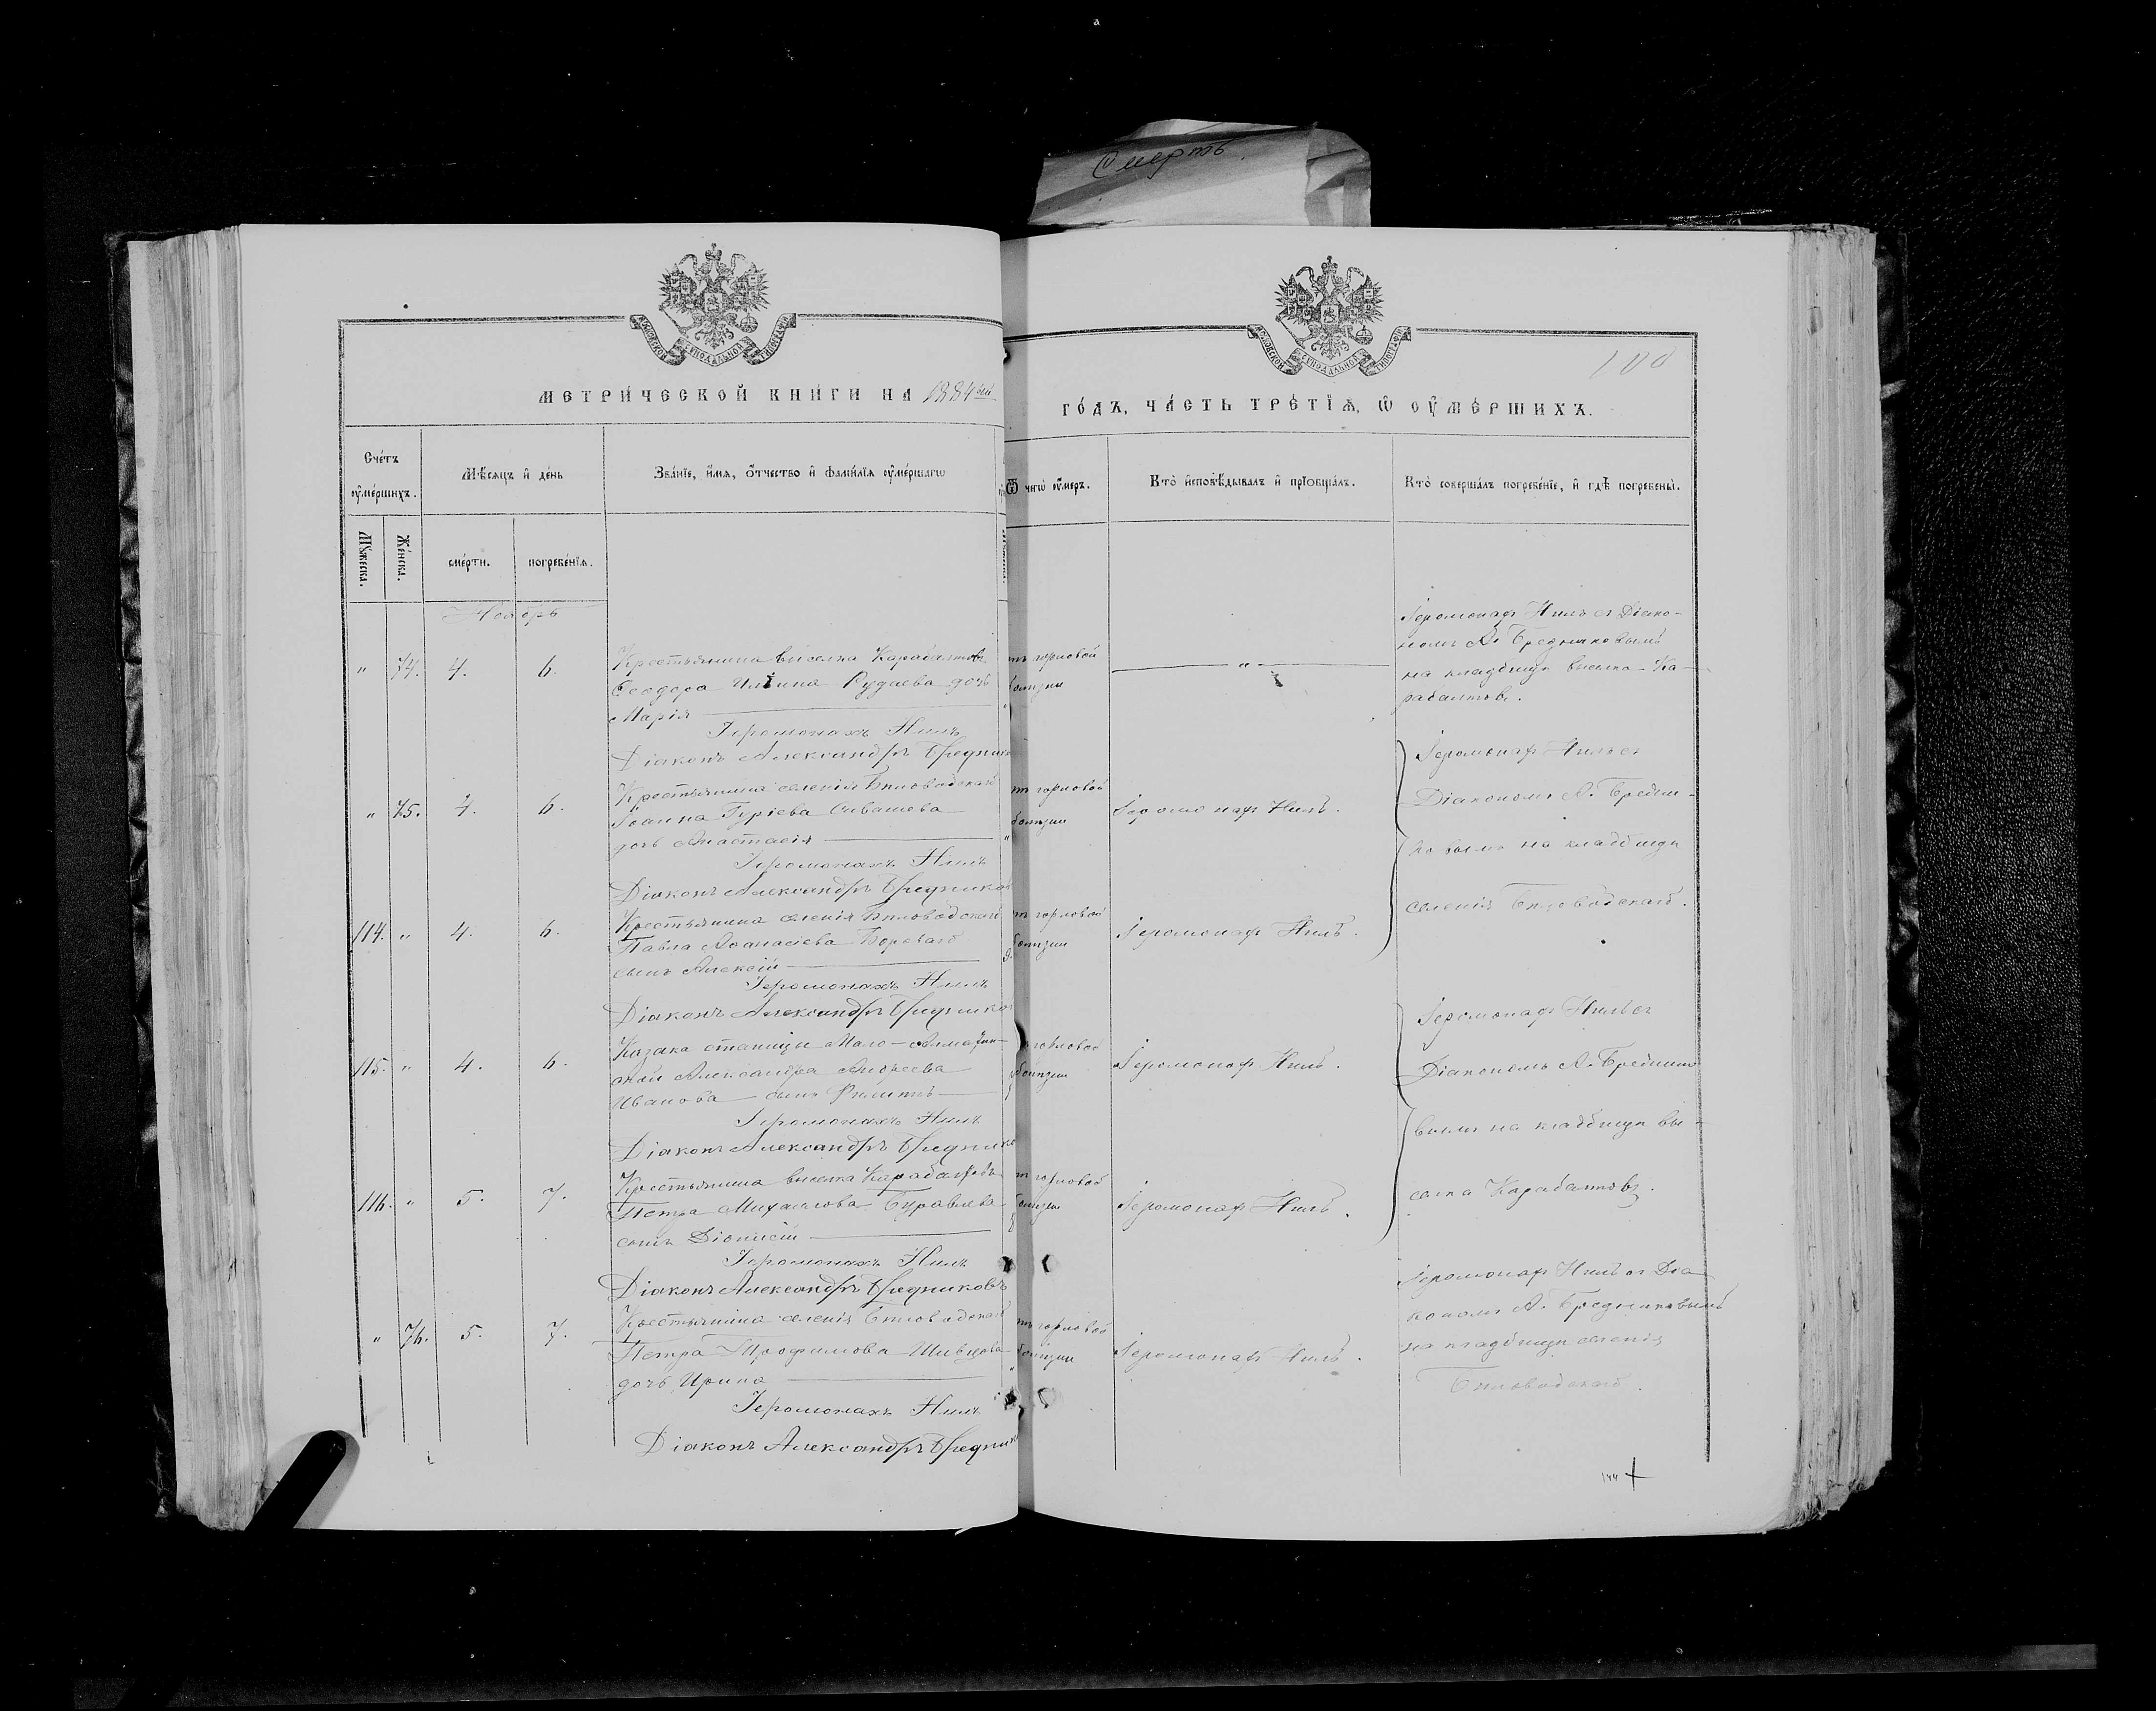 Смерть.
МОСКОВСКОЙ СѴНОДАЛЬНОЙ ТИПОГРАФІИ
МОСКОВСКОЙ СѴНОДАЛЬНОЙ ТИПОГРАФІИ
100
МЕТРИ́ЧЕСКОЙ КНИ́ГИ НА 1884 ый
ГО́ДЪ, ЧА́СТЬ ТРЕ́ТЇѦ, Ѡ ОУ҆МЕ́РШИХЪ.
Сче́тъ оу҆ме́ршихъ.
Мѣ́сяцъ и҆ де́нь
Зва́нїе, и҆́мѧ, ѻ҆́тчество и҆ фами́лїѧ оу҆ме́ршагѡ
Ѿ чегѡ̀ оу҆́меръ.
Кто̀ и҆сповѣ́дывалъ и҆ прїобща́лъ.
Кто̀ соверша́лъ погребе́нїе, и҆ гдѣ̀ погребены̀.
Мꙋ́жеска.
Же́нска.
сме́рти.
погребе́нїѧ.
Ноябрь
" 74. 4. 6.
Крестьянина выселка Карабалтовъ
Ѳеодора Ильина Рудаева дочь
Марія
Іеромонахъ Нилъ
Діаконъ Александръ Бредник
тъ горловой
болѣзни
"
Іеромонах Нилъ съ Діако-
номъ А. Бредниковымъ
на кладбищѣ выселка Ка-
рабалтовъ.
" 75. 4. 6.
Крестьянина селенія Бѣловодскаго
Іоанна Гуріева Сивашева
дочь Анастасія
Іеромонахъ Нилъ
Діаконъ Александръ Бреднико
тъ горловой
болѣзни
Іеромонах Нилъ.
Іеромонах Нилъ съ
Діакономъ А. Бредни-
ковымъ на кладбищѣ
селенія Бѣловодскаго.
114. " 4. 6.
Крестьянина селенія Бѣловодскаго
Павла Аѳанасіева Бороваго
сынъ Алексій
Іеромонахъ Нилъ
Діаконъ Александръ Бреднико
тъ горловой
болѣзни
Іеромонах Нилъ.
115. " 4. 6.
Казака станицы Мало-Алматин-
ской Александра Андреева
Иванова сынъ Филиппъ
Іеромонахъ Нилъ
Діаконъ Александръ Бреднико
горловой
болѣзни
Іеромонах Нилъ.
Іеромонах Нилъ съ
Діакономъ А. Бреднико
вымъ на кладбищѣ вы-
селка Карабалтовъ.
116. " 5. 7.
Крестьянина выселка Карабалтовъ
Петра Михайлова Журавлева
сынъ Діонисій
Іеромонахъ Нилъ
Діаконъ Александръ Бредниковъ
тъ горловой
болѣзни
Іеромонах Нилъ.
" 76. 5. 7.
Крестьянина селенія Бѣловодскаго
Петра Трофимова Шевцова
дочь Ирина
Іеромонахъ Нилъ
Діаконъ Александръ Бреднико
тъ горловой
болѣзни
Іеромонах Нилъ.
Іеромонах Нилъ съ Діа-
кономъ А. Бредниковымъ
на кладбищѣ селенія
Бѣловодскаго.
144